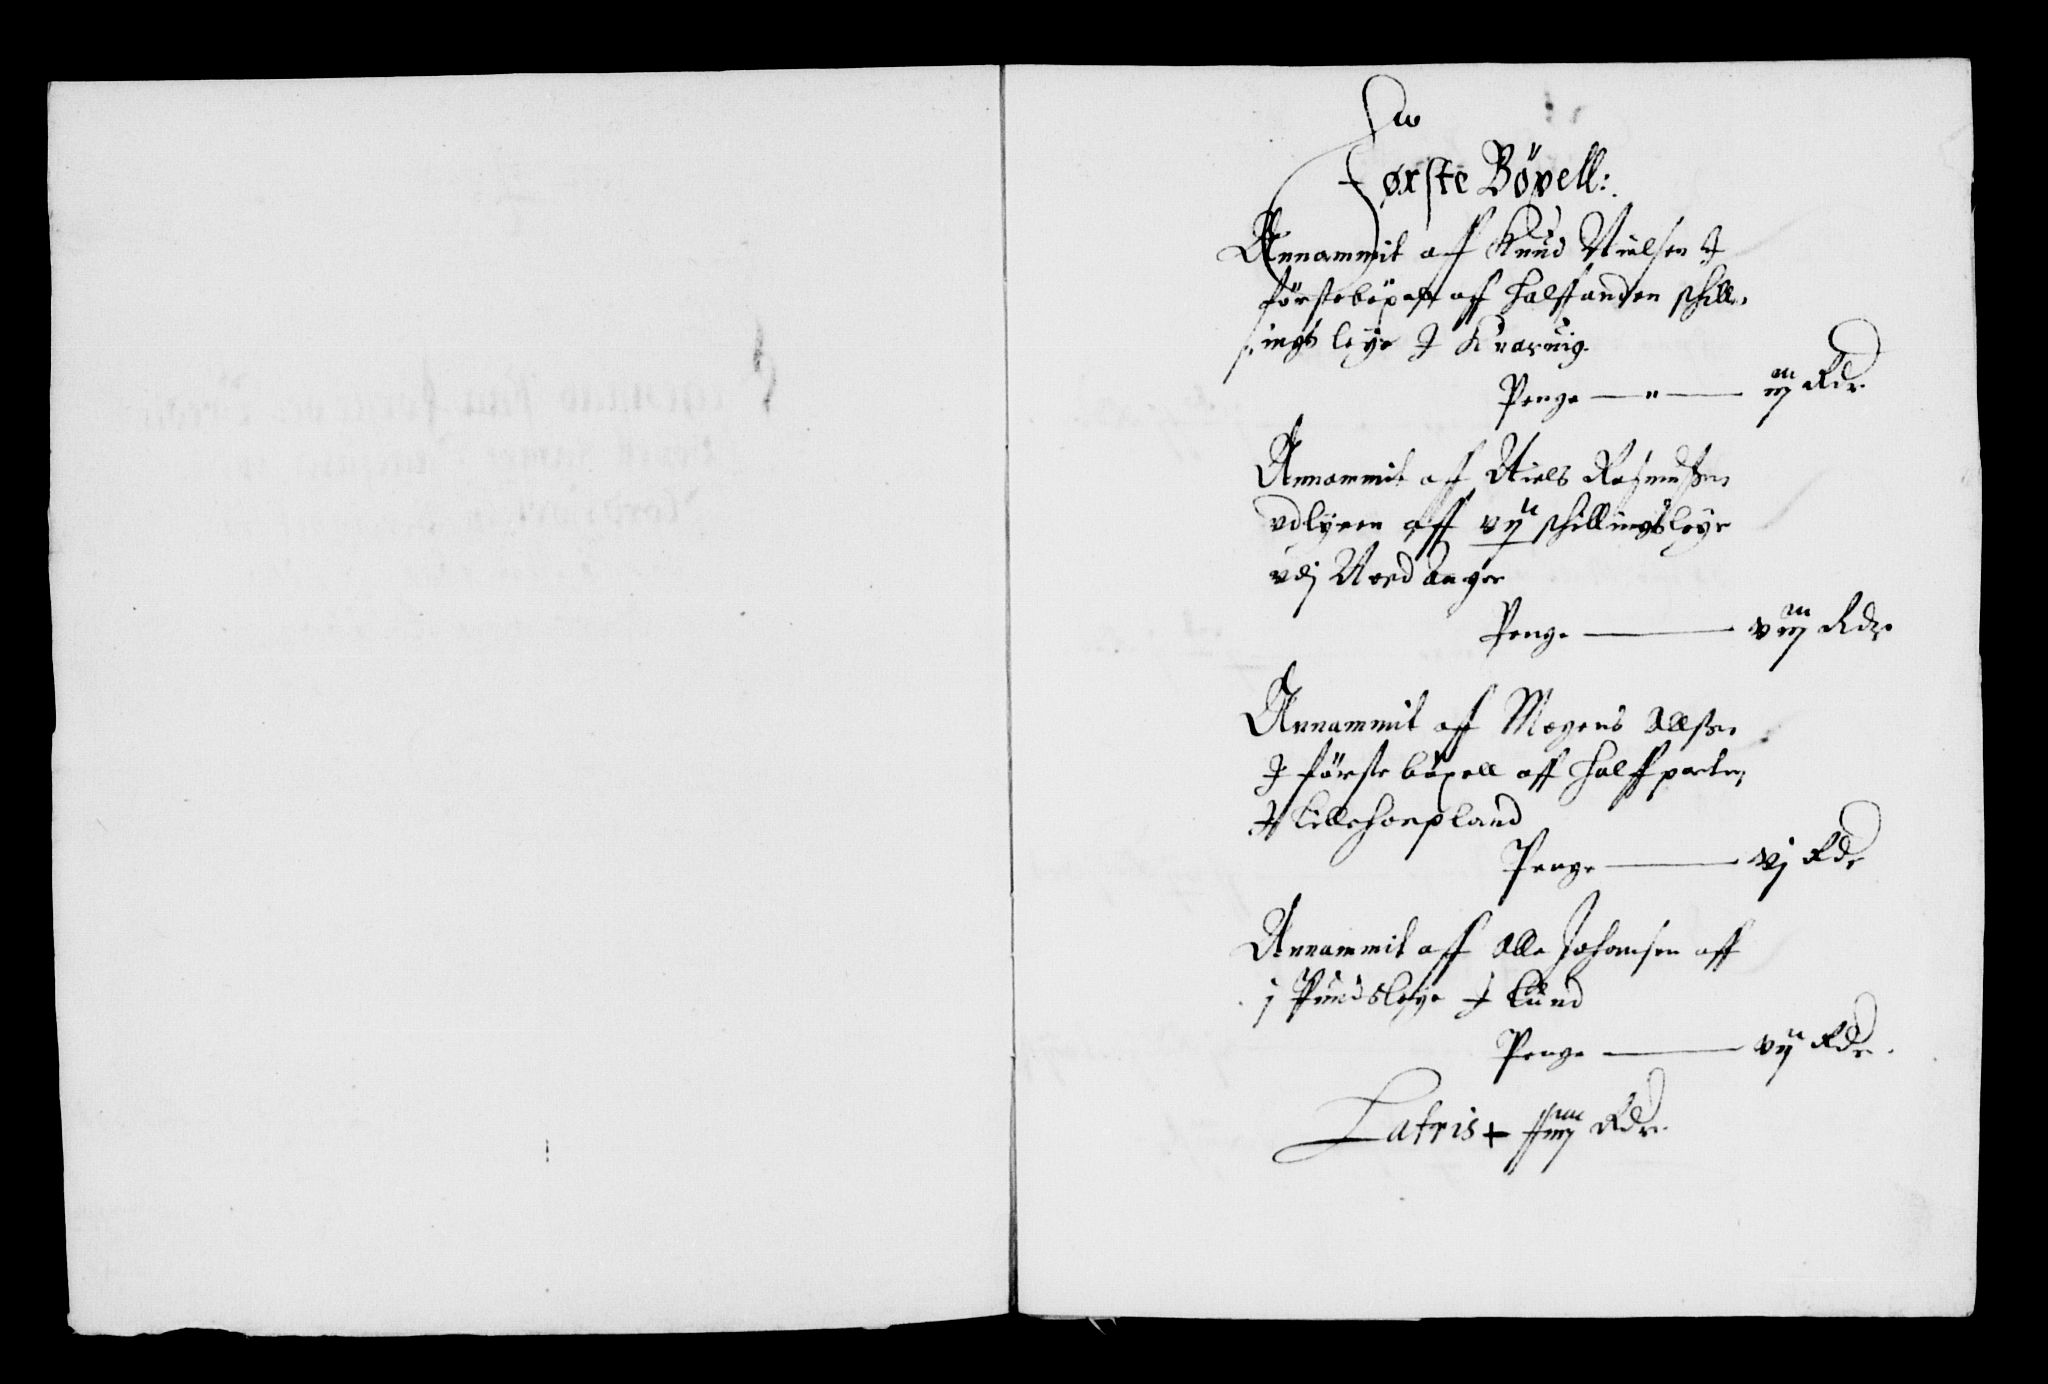 Første Böxell:
Annammit aff Knud Nielsen I
förste böxell aff halffanden schill-
ings leye I Knaruig
Penge — " — iij Rdr
Annammit aff Niels Rasmußen
vdlÿeren aff vij schillingsleye
vdj Nordanger
Penge — viij Rdr
Annammit aff Mogens Ollßen
I förste böxell aff halffparten
I Lillehoepland
Penge — vj Rdr
Annammit aff Olle Johansen aff
j Pundsleye I Lund
Penge — vij Rdr
Latris + xxiiij Rdr